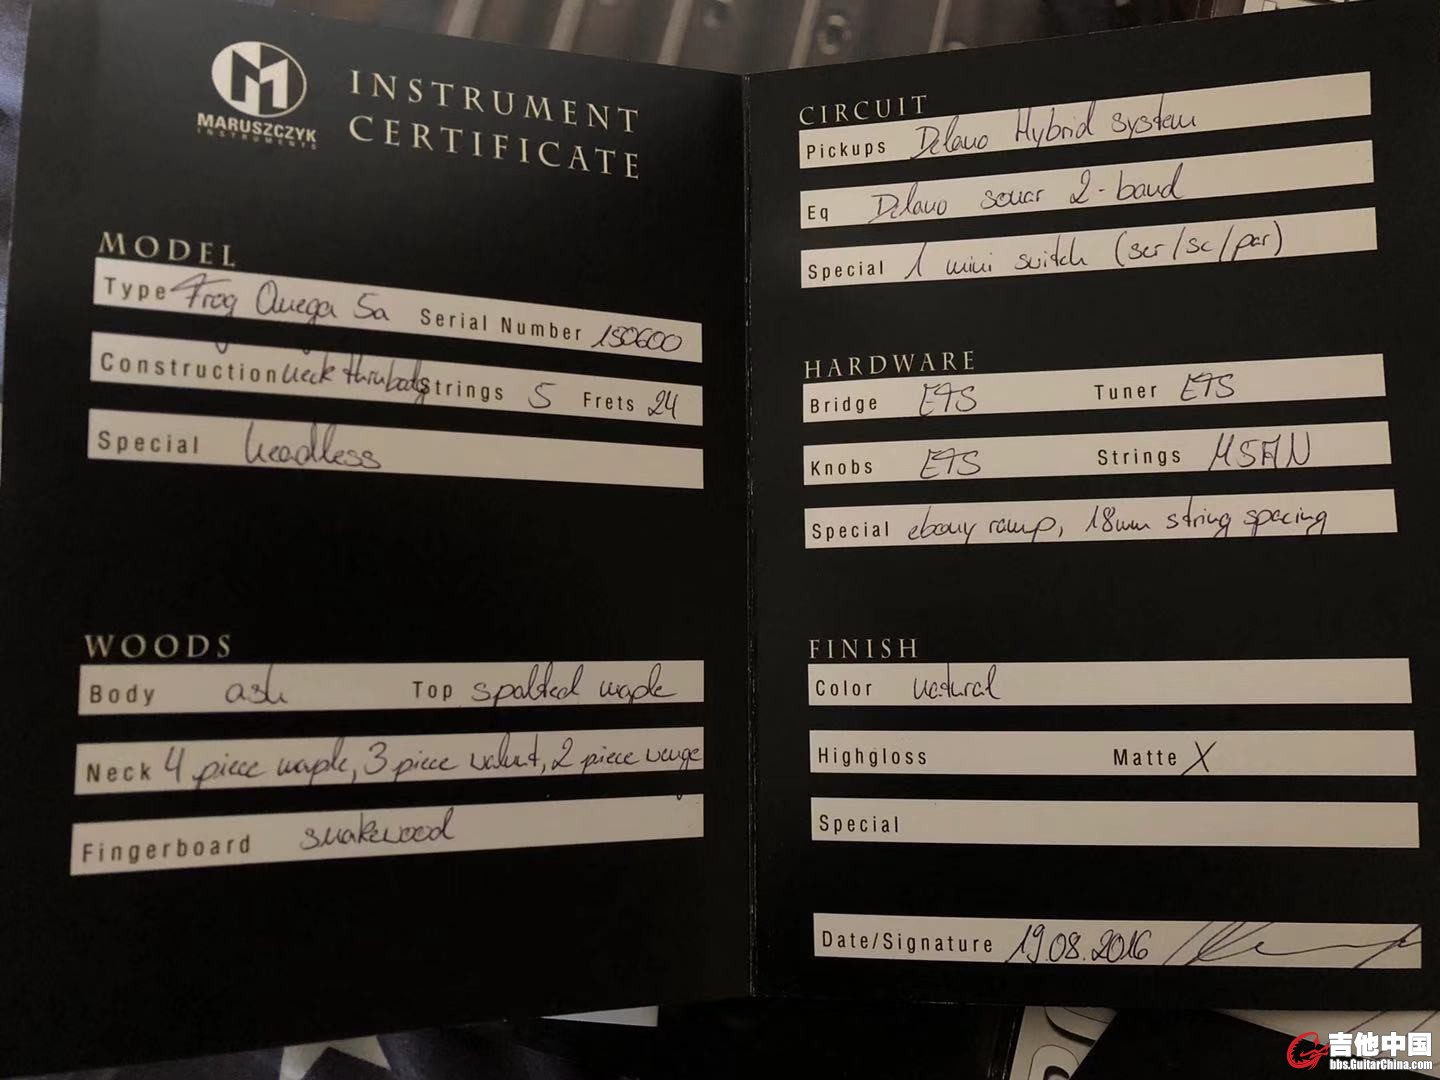 MARUSZCZYK
INSTRUMENTS
INSTRUMENT
CERTIFICATE
MODEL
Type Frog Omega 5a Serial Number 150600
Construction neck thru body Strings 5 Frets 24
Special headless
WOODS
Body ash Top spalted maple
Neck 4 piece maple, 3 piece walnut, 2 piece wenge
Fingerboard snakewood
CIRCUIT
Pickups Delano Hybrid system
Eq Delano sonar 2-band
Special 1 mini switch (ser/sc/par)
HARDWARE
Bridge ETS Tuner ETS
Knobs ETS Strings MSAN
Special ebony ramp, 18mm string spacing
FINISH
Color natural
Highgloss Matte X
Special
Date/Signature 19.08.2016
吉他中国
bbs.GuitarChina.com